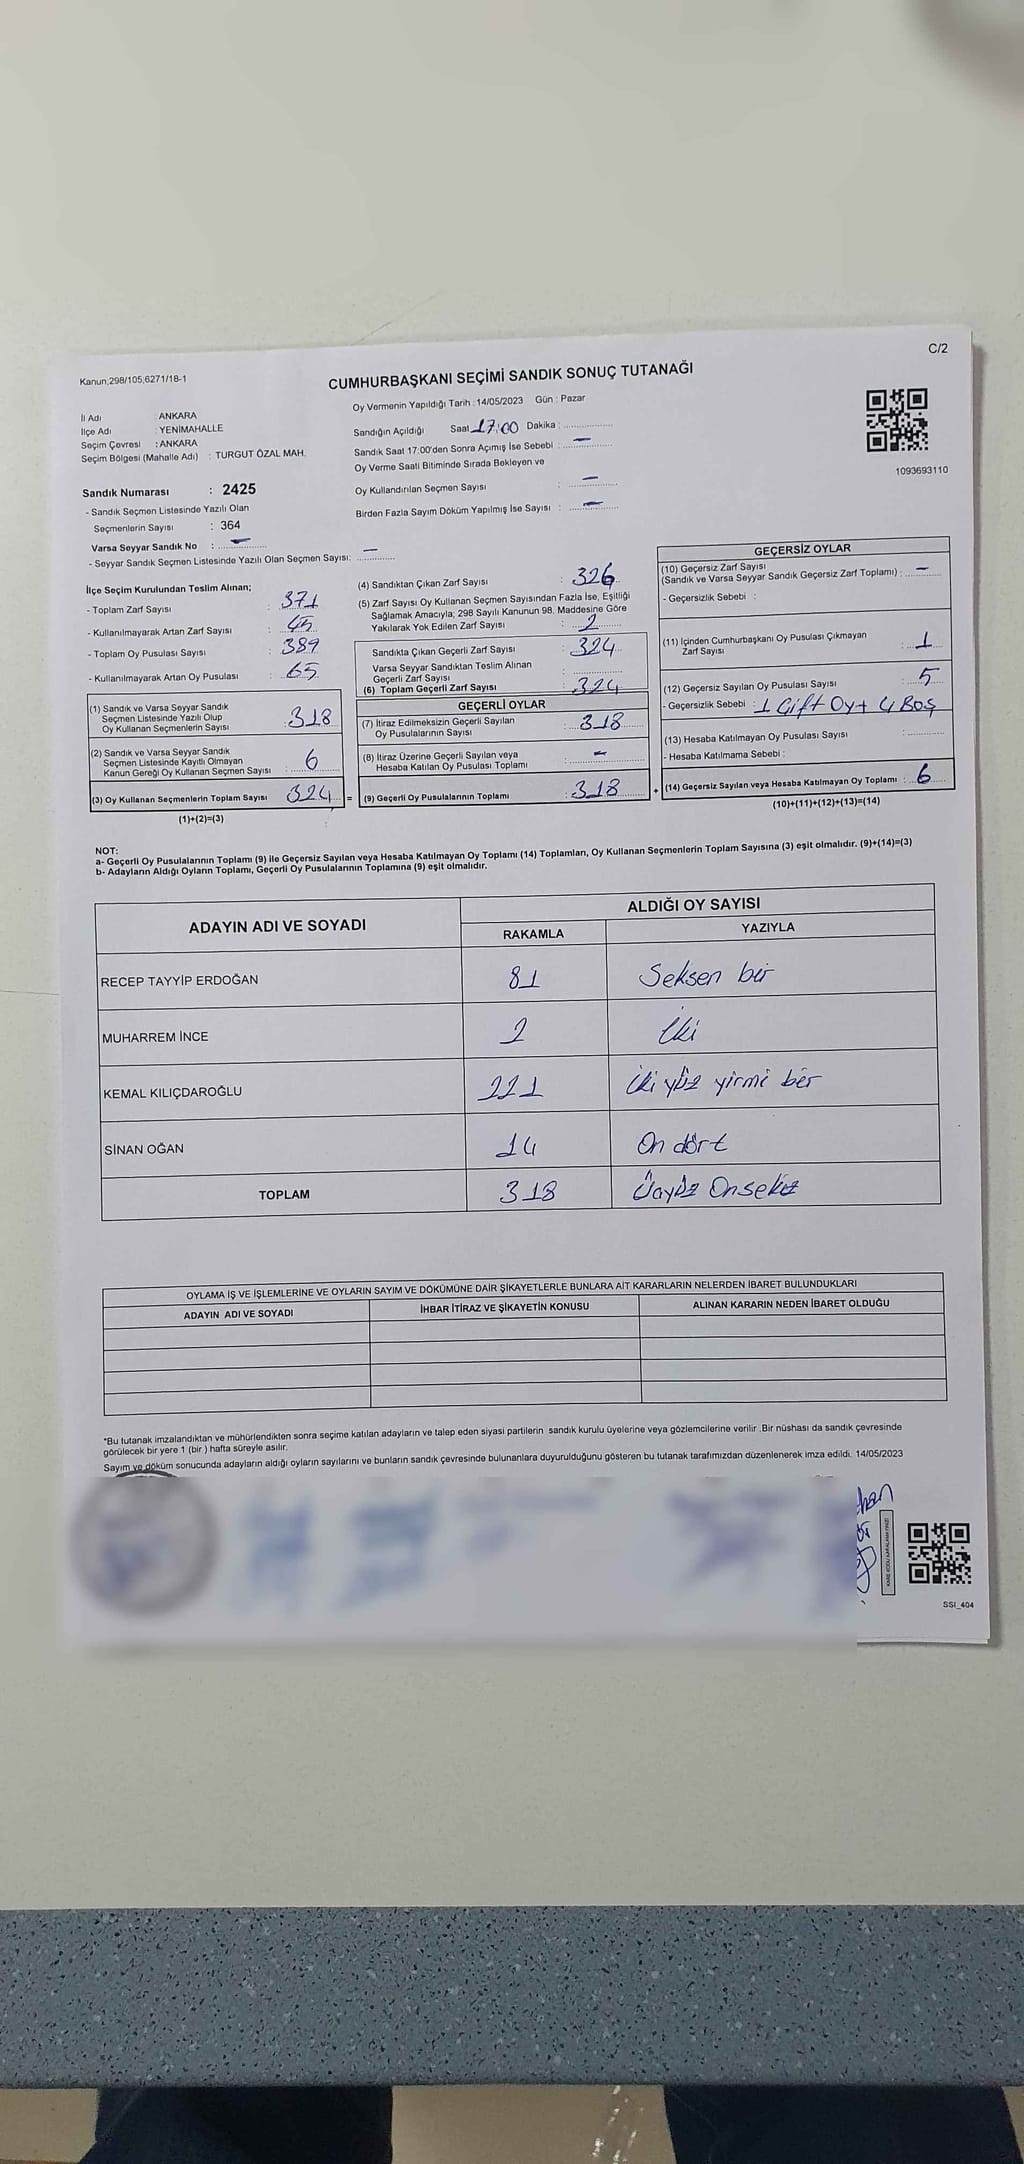 C/2
Kanun;298/105,6271/18-1
CUMHURBAŞKANI SEÇİMİ SANDIK SONUÇ TUTANAĞI
İl Adı : ANKARA
İlçe Adı : YENİMAHALLE
Seçim Çevresi : ANKARA
Seçim Bölgesi (Mahalle Adı) : TURGUT ÖZAL MAH.
Oy Vermenin Yapıldığı Tarih : 14/05/2023 Gün : Pazar
Sandığın Açıldığı Saat 17:00 Dakika :
Sandık Saat 17:00'den Sonra Açımış İse Sebebi : —
Oy Verme Saati Bitiminde Sırada Bekleyen ve
Oy Kullandırılan Seçmen Sayısı : —
Birden Fazla Sayım Döküm Yapılmış İse Sayısı : —
1093693110
Sandık Numarası : 2425
- Sandık Seçmen Listesinde Yazılı Olan
Seçmenlerin Sayısı : 364
Varsa Seyyar Sandık No : —
- Seyyar Sandık Seçmen Listesinde Yazılı Olan Seçmen Sayısı: —
İlçe Seçim Kurulundan Teslim Alınan;
- Toplam Zarf Sayısı : 371
- Kullanılmayarak Artan Zarf Sayısı : 45
- Toplam Oy Pusulası Sayısı : 389
- Kullanılmayarak Artan Oy Pusulası : 65
(1) Sandık ve Varsa Seyyar Sandık
Seçmen Listesinde Yazılı Olup
Oy Kullanan Seçmenlerin Sayısı : 318
(2) Sandık ve Varsa Seyyar Sandık
Seçmen Listesinde Kayıtlı Olmayan
Kanun Gereği Oy Kullanan Seçmen Sayısı : 6
(3) Oy Kullanan Seçmenlerin Toplam Sayısı : 324 =
(1)+(2)=(3)
(4) Sandıktan Çıkan Zarf Sayısı : 326
(5) Zarf Sayısı Oy Kullanan Seçmen Sayısından Fazla İse, Eşitliği
Sağlamak Amacıyla; 298 Sayılı Kanunun 98. Maddesine Göre
Yakılarak Yok Edilen Zarf Sayısı : 2
Sandıkta Çıkan Geçerli Zarf Sayısı : 324
Varsa Seyyar Sandıktan Teslim Alınan
Geçerli Zarf Sayısı :
(6) Toplam Geçerli Zarf Sayısı : 324
GEÇERLİ OYLAR
(7) İtiraz Edilmeksizin Geçerli Sayılan
Oy Pusulalarının Sayısı : 318
(8) İtiraz Üzerine Geçerli Sayılan veya
Hesaba Katılan Oy Pusulası Toplamı : —
(9) Geçerli Oy Pusulalarının Toplamı : 318 +
GEÇERSİZ OYLAR
(10) Geçersiz Zarf Sayısı
(Sandık ve Varsa Seyyar Sandık Geçersiz Zarf Toplamı) : —
- Geçersizlik Sebebi :
(11) İçinden Cumhurbaşkanı Oy Pusulası Çıkmayan
Zarf Sayısı : 1
(12) Geçersiz Sayılan Oy Pusulası Sayısı : 5
- Geçersizlik Sebebi : 1 Çift Oy + 4 Boş
(13) Hesaba Katılmayan Oy Pusulası Sayısı :
- Hesaba Katılmama Sebebi :
(14) Geçersiz Sayılan veya Hesaba Katılmayan Oy Toplamı : 6
(10)+(11)+(12)+(13)=(14)
NOT:
a- Geçerli Oy Pusulalarının Toplamı (9) ile Geçersiz Sayılan veya Hesaba Katılmayan Oy Toplamı (14) Toplamları, Oy Kullanan Seçmenlerin Toplam Sayısına (3) eşit olmalıdır. (9)+(14)=(3)
b- Adayların Aldığı Oyların Toplamı, Geçerli Oy Pusulalarının Toplamına (9) eşit olmalıdır.
ADAYIN ADI VE SOYADI ALDIĞI OY SAYISI
RAKAMLA YAZIYLA
RECEP TAYYİP ERDOĞAN 81 Seksen bir
MUHARREM İNCE 2 İki
KEMAL KILIÇDAROĞLU 221 İki yüz yirmi bir
SİNAN OĞAN 14 On dört
TOPLAM 318 Üçyüz Onsekiz
OYLAMA İŞ VE İŞLEMLERİNE VE OYLARIN SAYIM VE DÖKÜMÜNE DAİR ŞİKAYETLERLE BUNLARA AİT KARARLARIN NELERDEN İBARET BULUNDUKLARI
ADAYIN ADI VE SOYADI İHBAR İTİRAZ VE ŞİKAYETİN KONUSU ALINAN KARARIN NEDEN İBARET OLDUĞU
*Bu tutanak imzalandıktan ve mühürlendikten sonra seçime katılan adayların ve talep eden siyasi partilerin sandık kurulu üyelerine veya gözlemcilerine verilir .Bir nüshası da sandık çevresinde
görülecek bir yere 1 (bir ) hafta süreyle asılır.
Sayım ve döküm sonucunda adayların aldığı oyların sayılarını ve bunların sandık çevresinde bulunanlara duyurulduğunu gösteren bu tutanak tarafımızdan düzenlenerek imza edildi. 14/05/2023
SSI_404